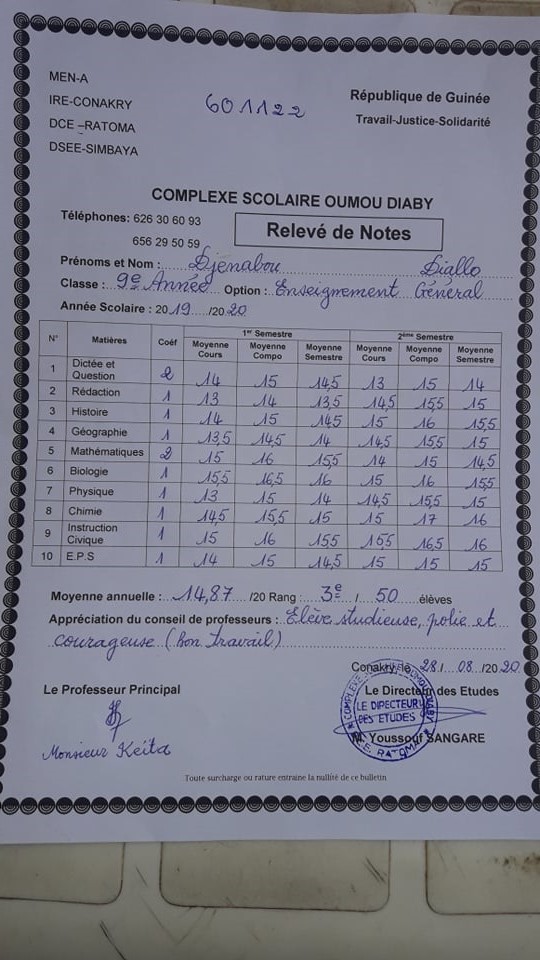 MEN-A
IRE-CONAKRY
DCE –RATOMA
DSEE-SIMBAYA
601122
République de Guinée
Travail-Justice-Solidarité
COMPLEXE SCOLAIRE OUMOU DIABY
Téléphones: 626 30 60 93
656 29 50 59
Relevé de Notes
Prénoms et Nom : Djénabou Diallo
Classe : 9e Année Option : Enseignement Général
Année Scolaire : 2019 /2020
N° Matières Coéf 1er Semestre 2ème Semestre
Moyenne Cours Moyenne Compo Moyenne Semestre Moyenne Cours Moyenne Compo Moyenne Semestre
1 Dictée et Question 2 14 15 14,5 13 15 14
2 Rédaction 1 13 14 13,5 14,5 15,5 15
3 Histoire 1 14 15 14,5 15 16 15,5
4 Géographie 1 13,5 14,5 14 14,5 15,5 15
5 Mathématiques 2 15 16 15,5 14 15 14,5
6 Biologie 1 15,5 16,5 16 15 16 15,5
7 Physique 1 13 15 14 14,5 15,5 15
8 Chimie 1 14,5 15,5 15 15 17 16
9 Instruction Civique 1 15 16 15,5 15,5 16,5 16
10 E.P.S 1 14 15 14,5 15 15 15
Moyenne annuelle : 14,87 /20 Rang : 3e / 50 élèves
Appréciation du conseil de professeurs : Elève studieuse, polie et
courageuse (Bon Travail)
Conakry, le 28 / 08 /2020
Le Professeur Principal
Le Directeur des Etudes
LE DIRECTEUR
DES ETUDES
M. Youssouf SANGARE
Monsieur Keita
Toute surcharge ou rature entraine la nullité de ce bulletin